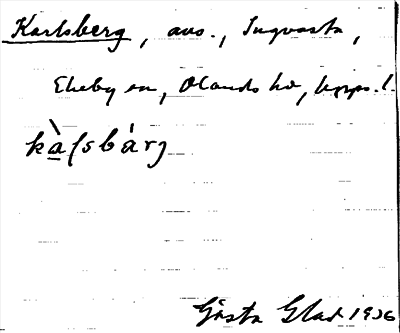 Karlsberg, avs., Ingvasta,
Ekeby sn, Olands hd, Upps. l.
kàlsbárj
Gösta Glad 1936